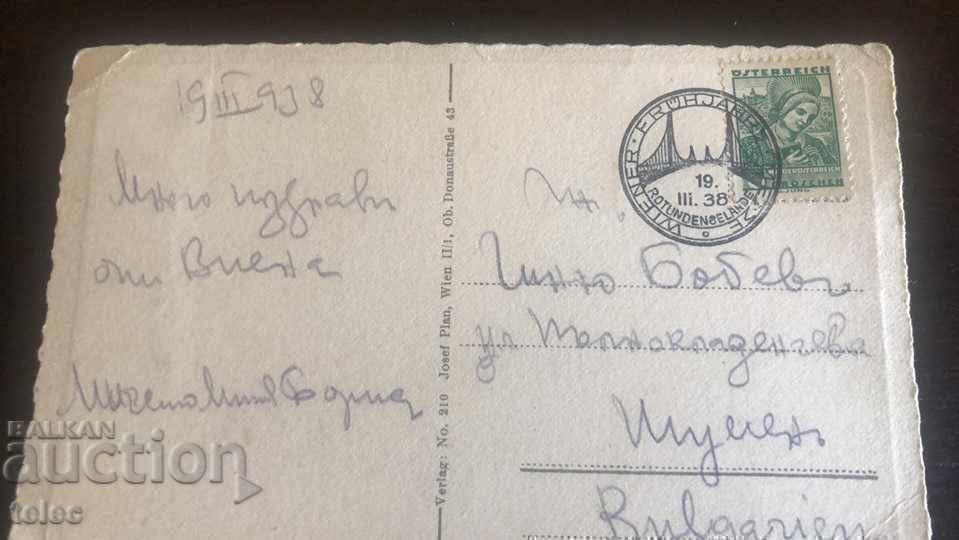 19 III 938
Много поздрави
от Виена
Борис
Verlag: No. 210 Josef Plan, Wien II/1, Ob. Donaustraße 43
WIENER · FRÜHJAHRSMESSE
19.
III. 38
ROTUNDENGELÄNDE
ÖSTERREICH
Бобев
ул
Шумен
Bulgarien
BALKAN
auction
telec